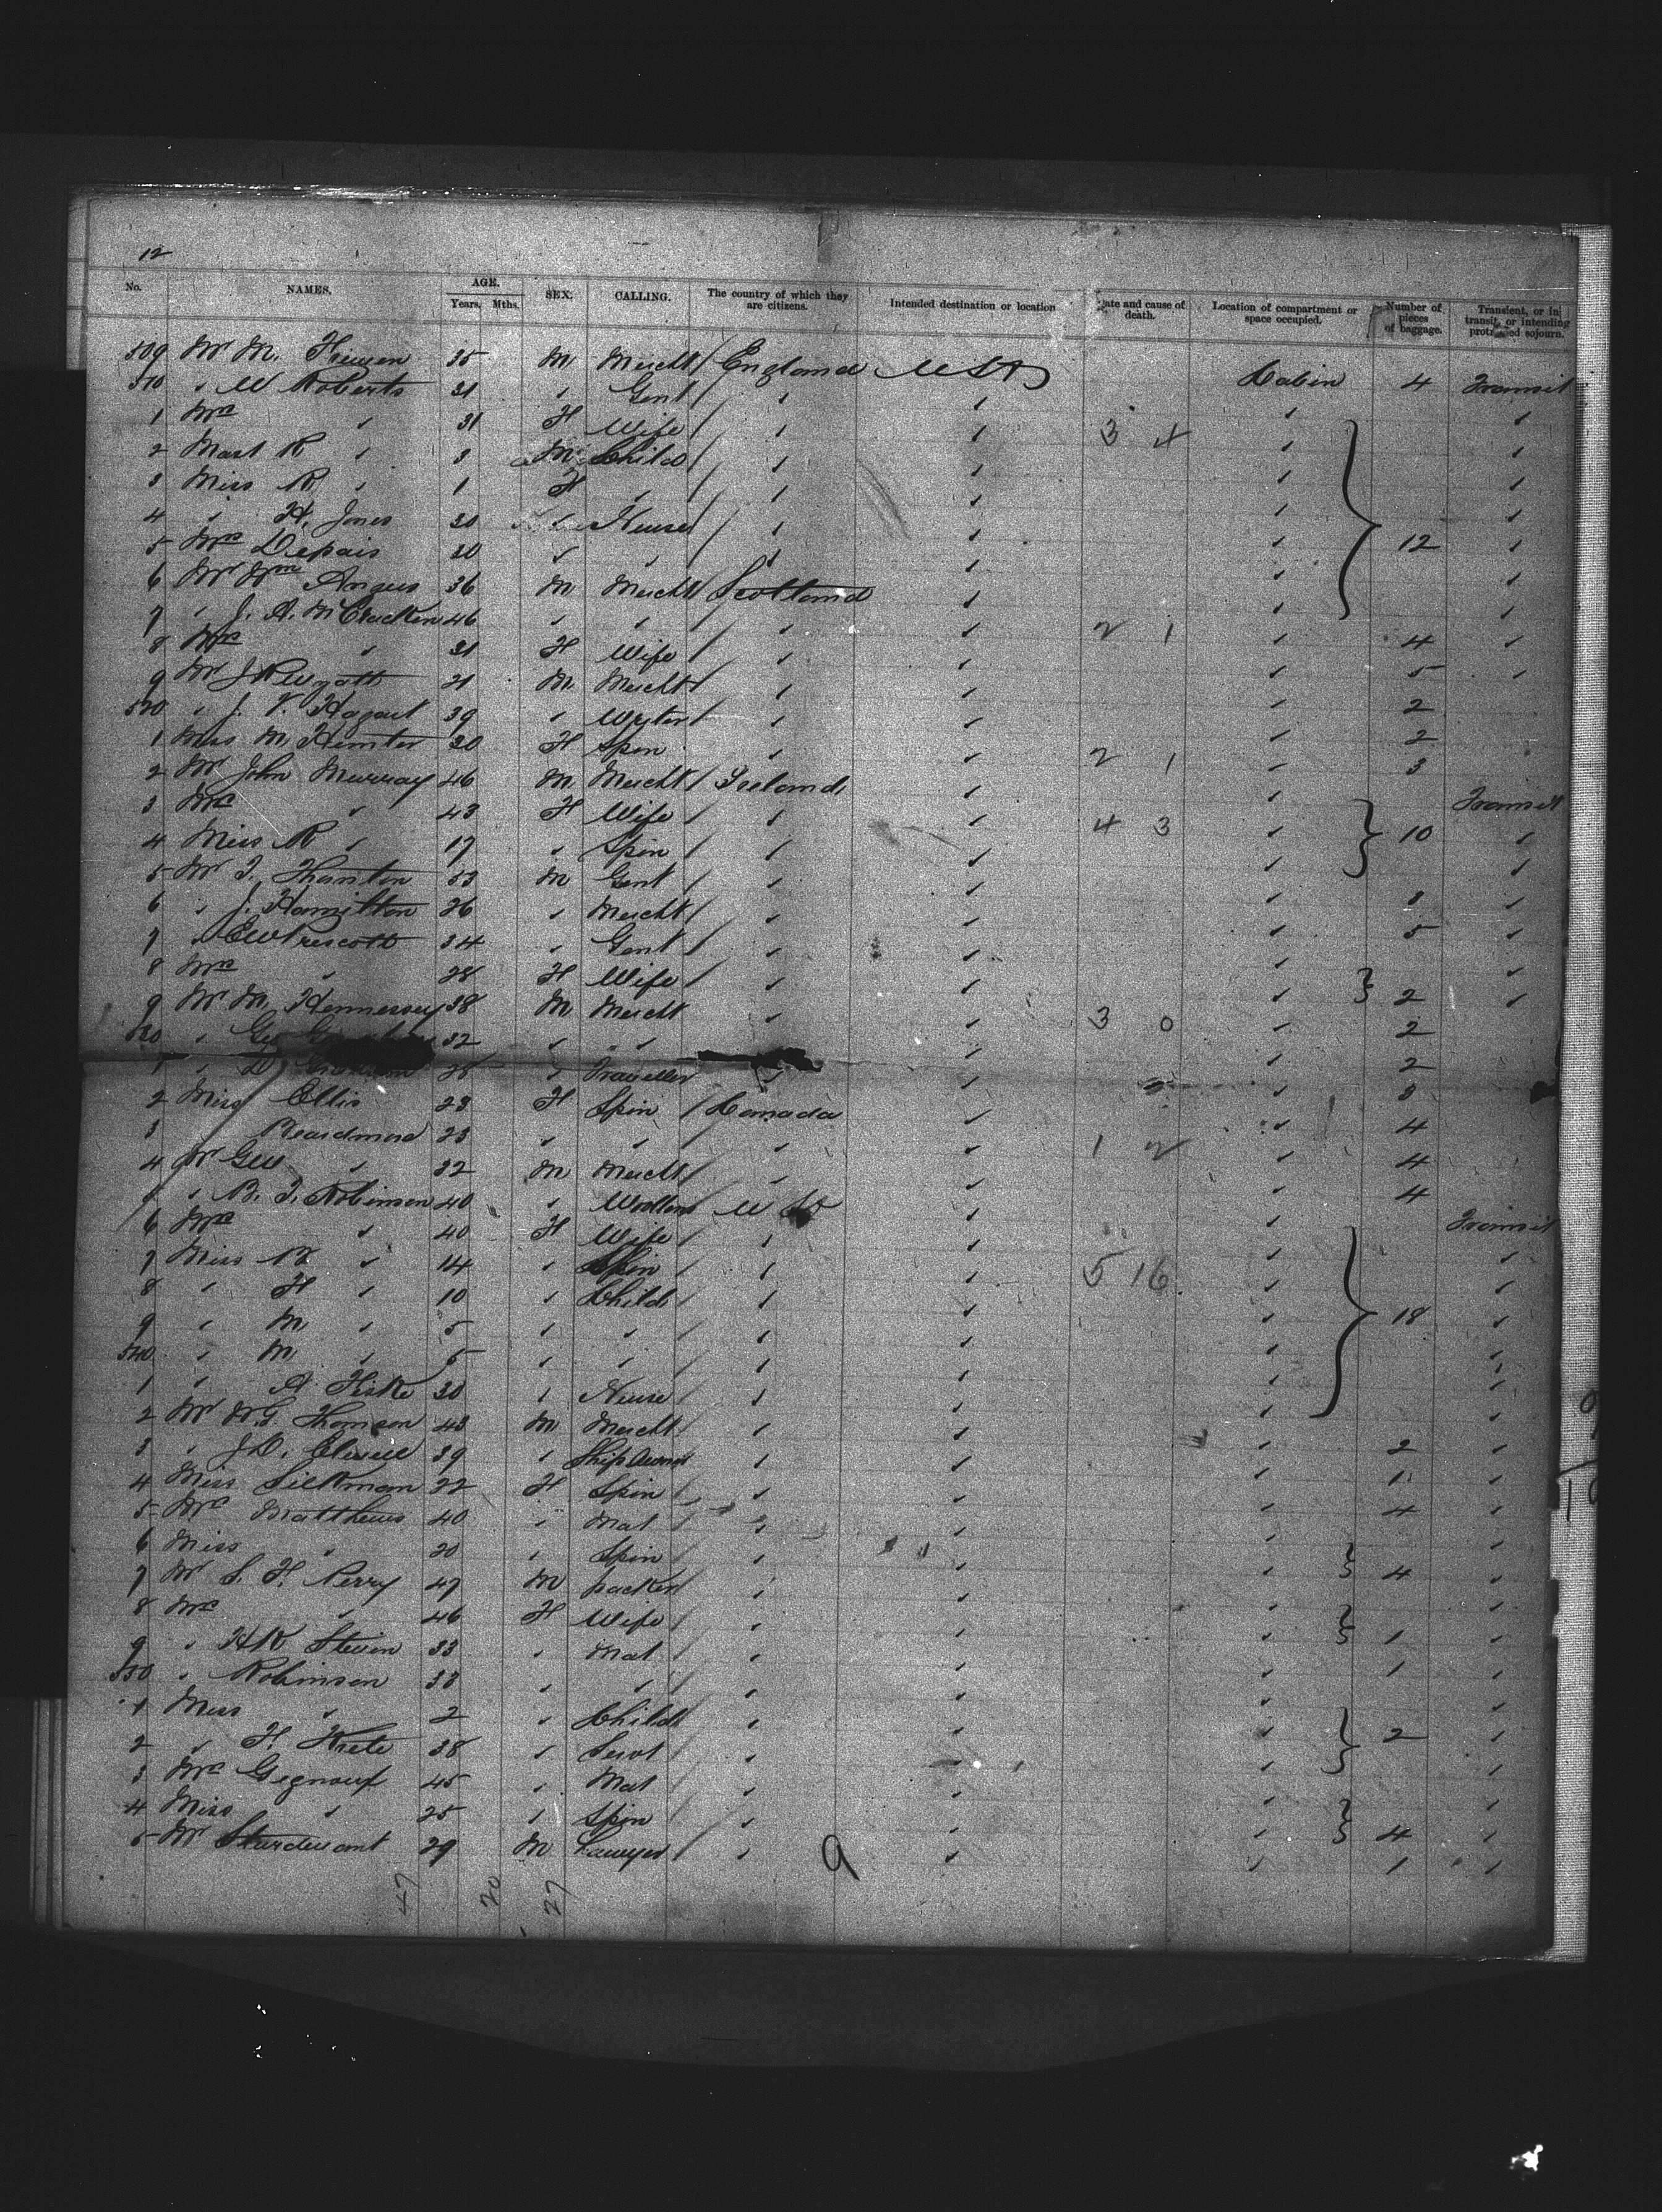 12
No. NAMES. AGE. Years. Mths. SEX. CALLING. The country of which they are citizens. Intended destination or location Date and cause of death. Location of compartment or space occupied. Number of pieces of baggage. Transient, or in transit, or intending protracted sojourn.
509 Mr M. 35 M Mercht / England USA Cabin 4 Transit
510 " W Roberts 31 " Gent / " " " "
1 Mrs " 31 F Wife / " " 3 4 " "
2 Mast R " 3 M Child / " " " "
3 Miss R " 1 F " / " " " "
4 " H. Jones 30 " Nurse / " " " 12 "
5 Mrs Depais 30 " " / " " " "
6 Mr Wm Angus 36 M Mercht / Scotland " " "
7 " J. A. McCracken 46 " " / " " 2 1 " 4 "
8 Mrs " 31 F Wife / " " " 5 "
9 Mr J R Wyatt 21 M Mercht / " " " 2
520 " J. V. Hagart 39 " Writer / " " " 2
1 Miss M. Hunter 20 F Spin " " 2 1 " 3
2 Mr John Murray 46 M Mercht / Ireland " " Transit
3 Mrs " 43 F Wife / " " 4 3 " 10 "
4 Miss R " 17 " Spin / " " " "
5 Mr T. Thornton 53 M Gent / " " 8 "
6 " J. Hamilton 26 " Mercht / " " " 5 "
7 " E W Prescott 34 " Gent / " " " "
8 Mrs " 28 F Wife / " " " 2 "
9 Mr M. Hennessey 38 M Mercht " " 3 0 " 2
530 " Geo 32 " " " " 2
1 " D 28 " Traveller " " " 8
2 Miss Ellis 23 F Spin / Canada " " 4
3 Beardmore 23 " " / " " 1 2 " 4
4 Mr Geo " 32 M Mercht / " " " 4
5 " B. T. Robinson 40 " US " " Transit
6 Mrs " 40 F Wife / " " " "
7 Miss " 14 " Spin / " " 5 16 " "
8 " H " 10 " Child / " " " 18 "
9 " M " 5 " " / " " " "
540 " M " 5 " " / " " " "
1 " A. Fiske 30 " Nurse / " " " "
2 Mr W.G. Thomson 43 M Mercht / " " " 2 "
3 " J.D. Elwell 39 " Ship Owner " " " 1 "
4 Miss Silkman 22 F Spin / " " " 4 "
5 Mrs Matthews 40 " Mat / " " " "
6 Miss " 20 " Spin / " " " 4 "
7 Mr S. H. Perry 47 M packer / " " " "
8 Mrs " 46 F Wife / " " " 1 "
9 " H K Steven 33 " Mat / " " " 1 "
550 " Robinson 38 " " / " " " "
1 Miss " 2 " Child / " " " 2 "
2 " F. 38 " Servt / " " " "
3 Mrs 45 " Mat / " " " "
4 Miss " 25 " Spin / " " " 4 "
5 Mr Sturdevant 29 M Lawyer / " " " 1 "
9
47 20 27